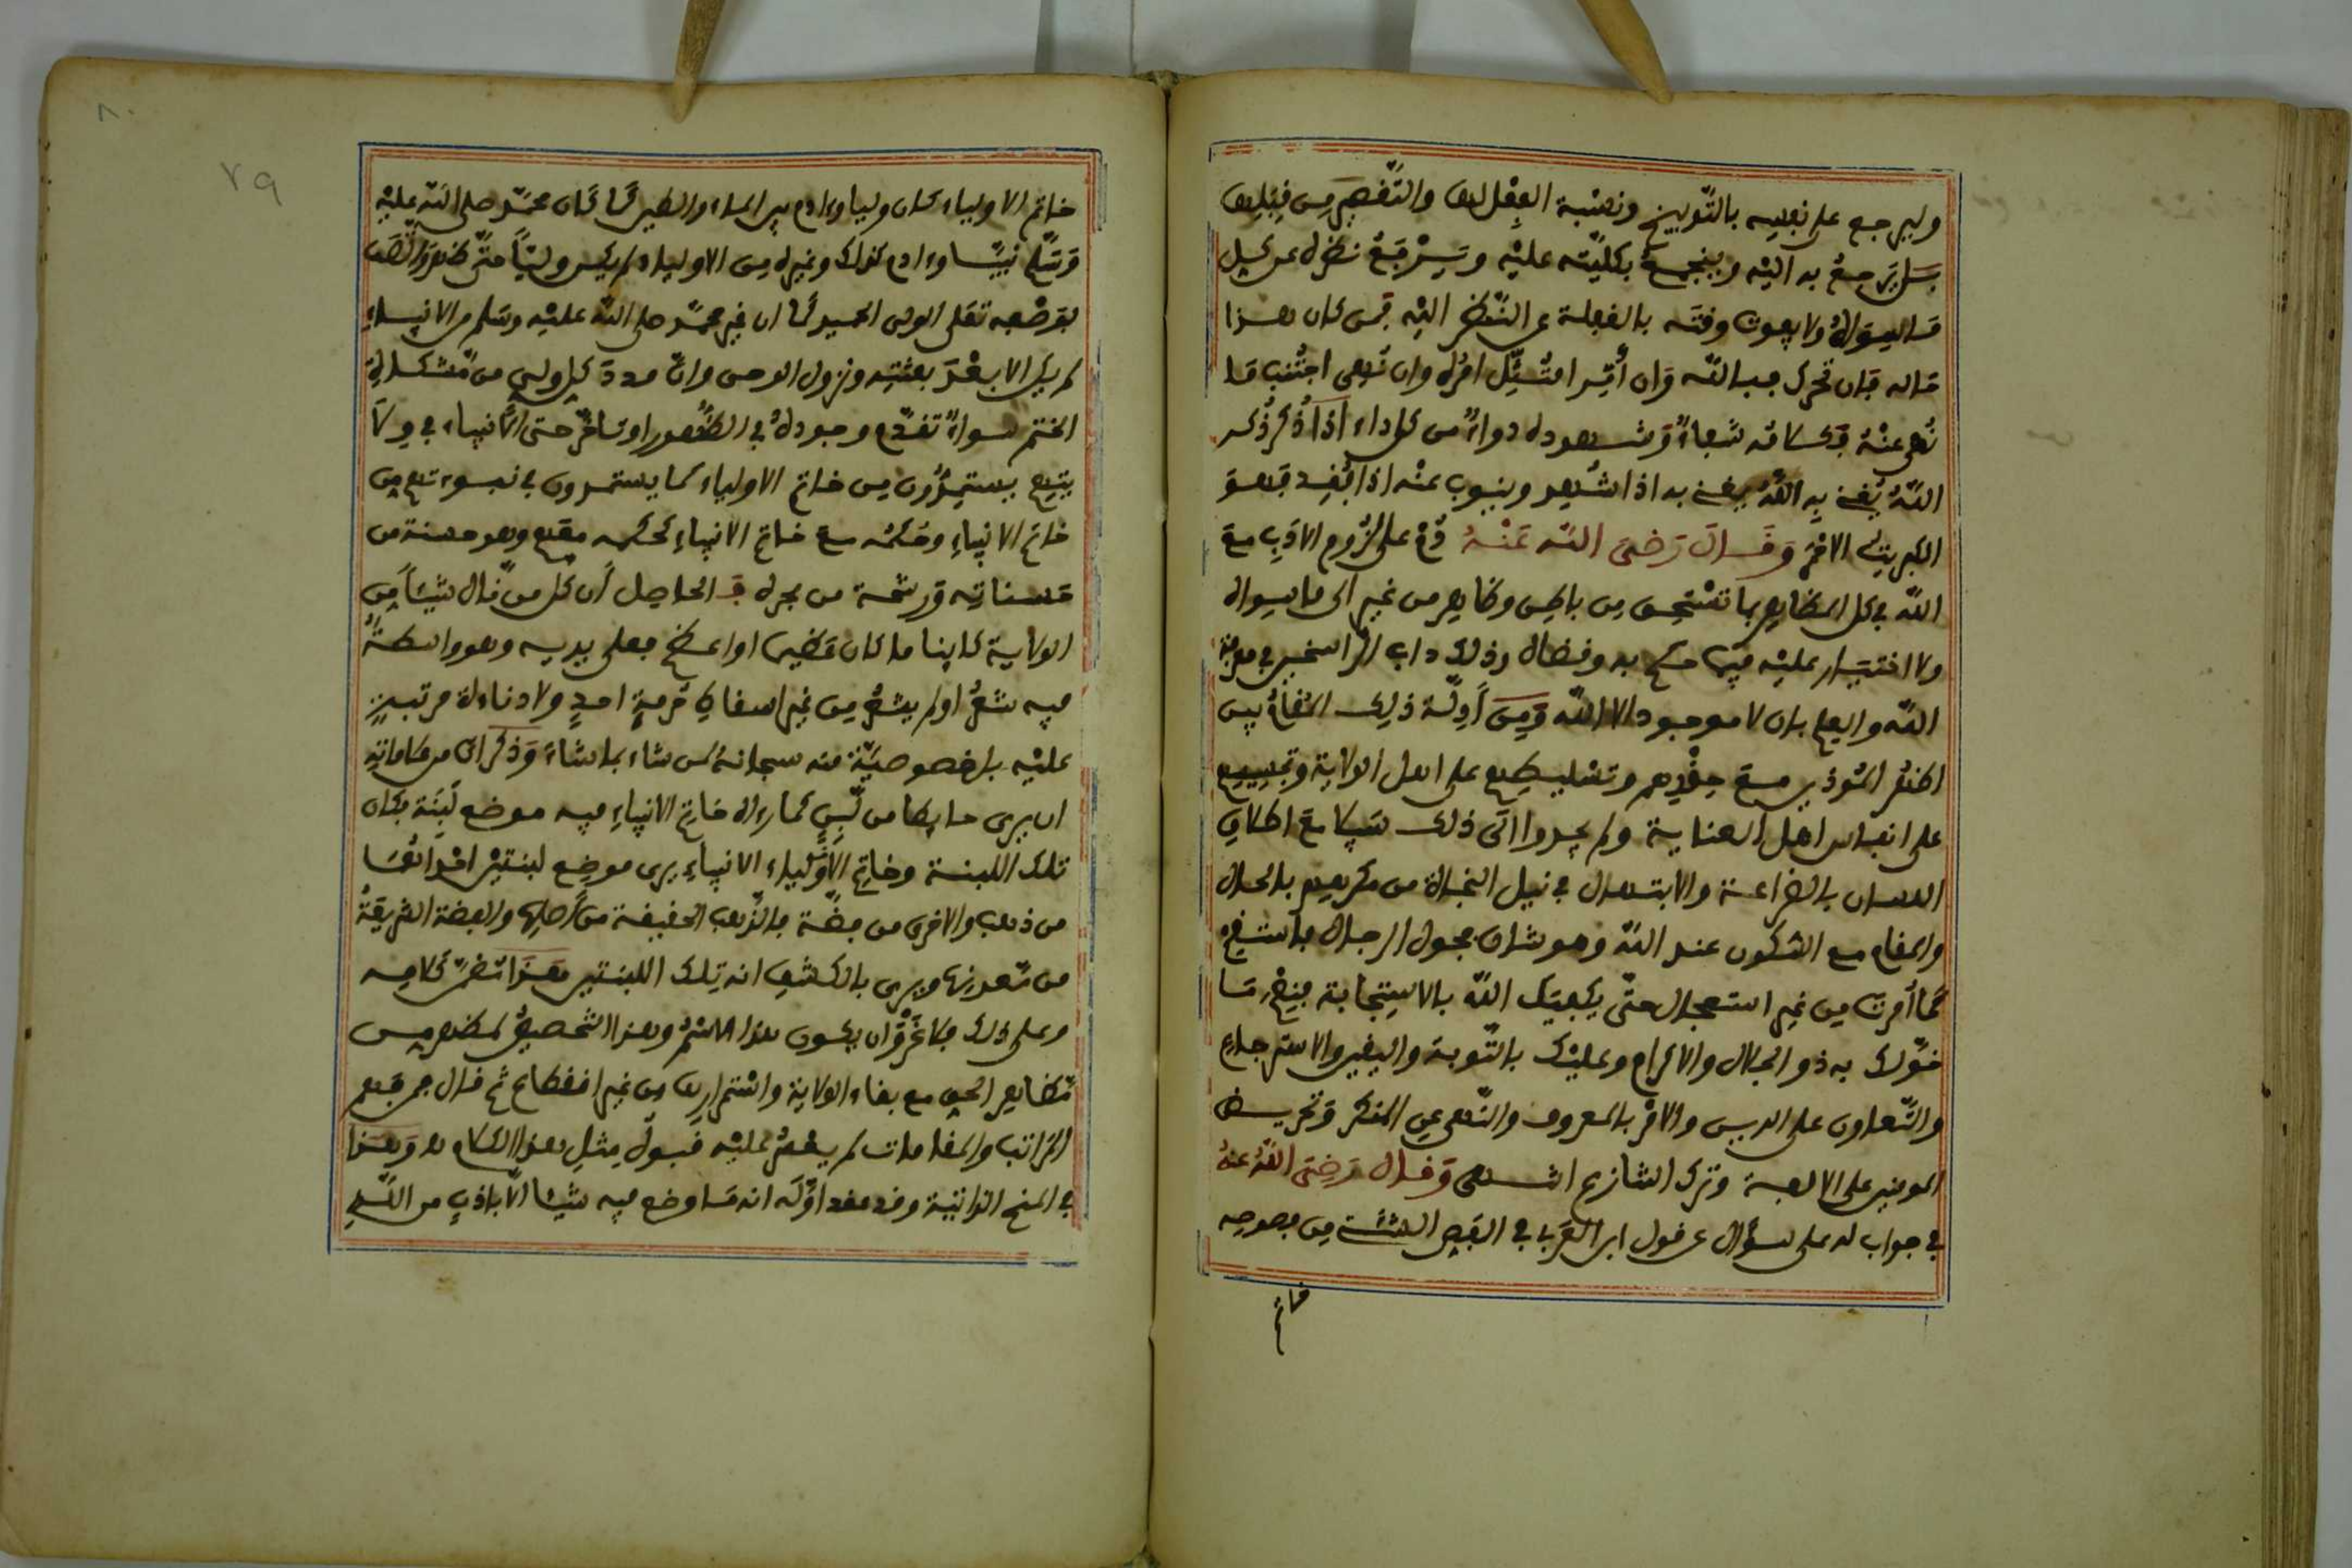 وليرجع على نفسه بالتوبيخ ونسبة الفعل لها والتقصير من قبلها
بل يرجع به اليه ويجمع بكليته عليه ويسترجع نظره عن كل
ما سواه ولا يفوت وقته بالغفلة عن النظر اليه فمن كان هذا
حاله فان تحرك فبالله وان أمر امتثل امره وان نهى اجتنب ما
نهى عنه فكلامه شفاء وشهوده دواء من كل داء اذا ذكر ذكر
الله يغني به الله يغني به اذا شهد وينوب عنه اذا فقد فهو
الكبريت الاحمر وقال رضي الله عنه دم على لزوم الادب مع
الله في كل المظاهر بما تستحق من باطن وظاهر من غير الى ما سواه
ولا اختيار عليه فيما حكم به وقضاه وذلك داب الراسخين في معرفة
الله والعلم بان لا موجود الا الله ومن أدلة ذلك المقام بين
اظهر الموذين مع حقدهم وتسليطهم على اهل الولاية
على انفاس اهل العناية ولم يجدوا الى ذلك سبيلا مع اطلاق
اللسان بالضراعة والابتهال في نيل النجاة من مكرهم بالحال
والمقام مع السكون عند الله وهو شان فحول الرجال فاستقم
كما أمرت من غير استعجال حتى يجيبك الله بالاستجابة فيتم ما
خولك به ذو الجلال والاكرام وعليك بالتوبة واليقين والاسترجاع
والتعاون على الدين والامر بالمعروف والنهي عن المنكر وتحريض
المومنين على الالفة وترك التنازع انتهى وقال رضي الله عنه
في جواب له على سؤال عن قول ابن العربي في الفص الشيث من فصوصه
خاتم
٨٠
٧٩
خاتم الاولياء كان وليا وءادم بين الماء والطين كما كان محمد صلى الله عليه
وسلم نبيا وءادم كذلك وغيره من الاولياء لم يكن وليا حتى ظهر واتصف
بوصفه تعلى الولي الحميد كما ان غير محمد صلى الله عليه وسلم من الانبياء
لم يكن الا بعد بعثته ونزول الوحي وان مدد كل ولي من مشكاة
الختم سواء تقدم وجوده في الظهور او تاخر حتى الانبياء في ولا
يتهم يستمدون من خاتم الاولياء كما يستمدون في نبوءتهم من
خاتم الانبياء وحكمه مع خاتم الانبياء كحكمه معهم وهو حسنة من
حسناته ورشحة من بحره فـ الحاصل أن كل من نال شيئا من
الولاية كاينا ما كان عظيما او اعظم فعلى يديه وهو واسطة
فيه شعر او لم يشعر من غير اسقاط حرمة احد ولا دناءة مرتبة
عليه بل خصوصية منه سبحانه لمن شاء بما شاء وذكر ان من علاماته
ان يرى حايطا من لبن كما رءاه خاتم الانبياء فيه موضع لبنة فكان
تلك اللبنة وخاتم الاولياء الانبياء يرى موضع لبنتين احداهما
من ذهب والاخرى من فضة فالذهب الحقيقة من أصلها والفضة الشريعة
من معدنها ويرى بالكشف انه تلك اللبنتين هذا تضمن كلامه
وعلى ذلك فلا غرو أن يكون هذا الختم وهذا التخصيص لمظهر من
مظاهر الحق مع بقاء الولاية واستمرارها من غير انقطاع ثم قال فمن فهم
المراتب والمقامات لم يعسر عليه قبول مثل هذا الكلام له وهذا
في المنح الذاتية وقد عقد اوله انه ما وضع فيه شيئا الا باذن من الله